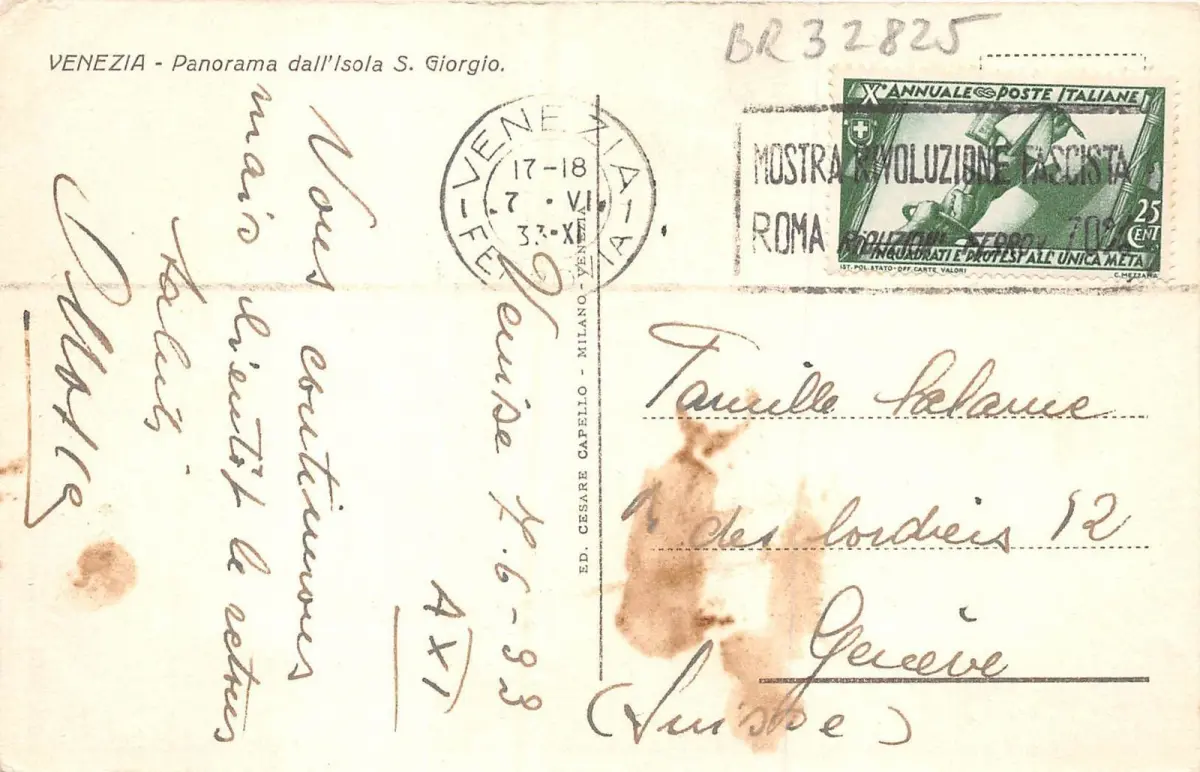 BR 32825
VENEZIA - Panorama dall'Isola S. Giorgio.
X° ANNUALE POSTE ITALIANE
25
CENT
INQUADRATI E PROTESI ALL'UNICA META
IST. POL. STATO - OFF. CARTE VALORI
C. MEZZANA
VENEZIA
17-18
7 · VI
33 · XI
FERROVIA
MOSTRA RIVOLUZIONE FASCISTA
ROMA RIDUZIONI FERROV. 70%
ED. CESARE CAPELLO - MILANO - VENEZIA
Venise 7.6-33
AXI
Vous continuons
mais bientôt le retour
Saluti
Famille
des 12
Genève
(Suisse)